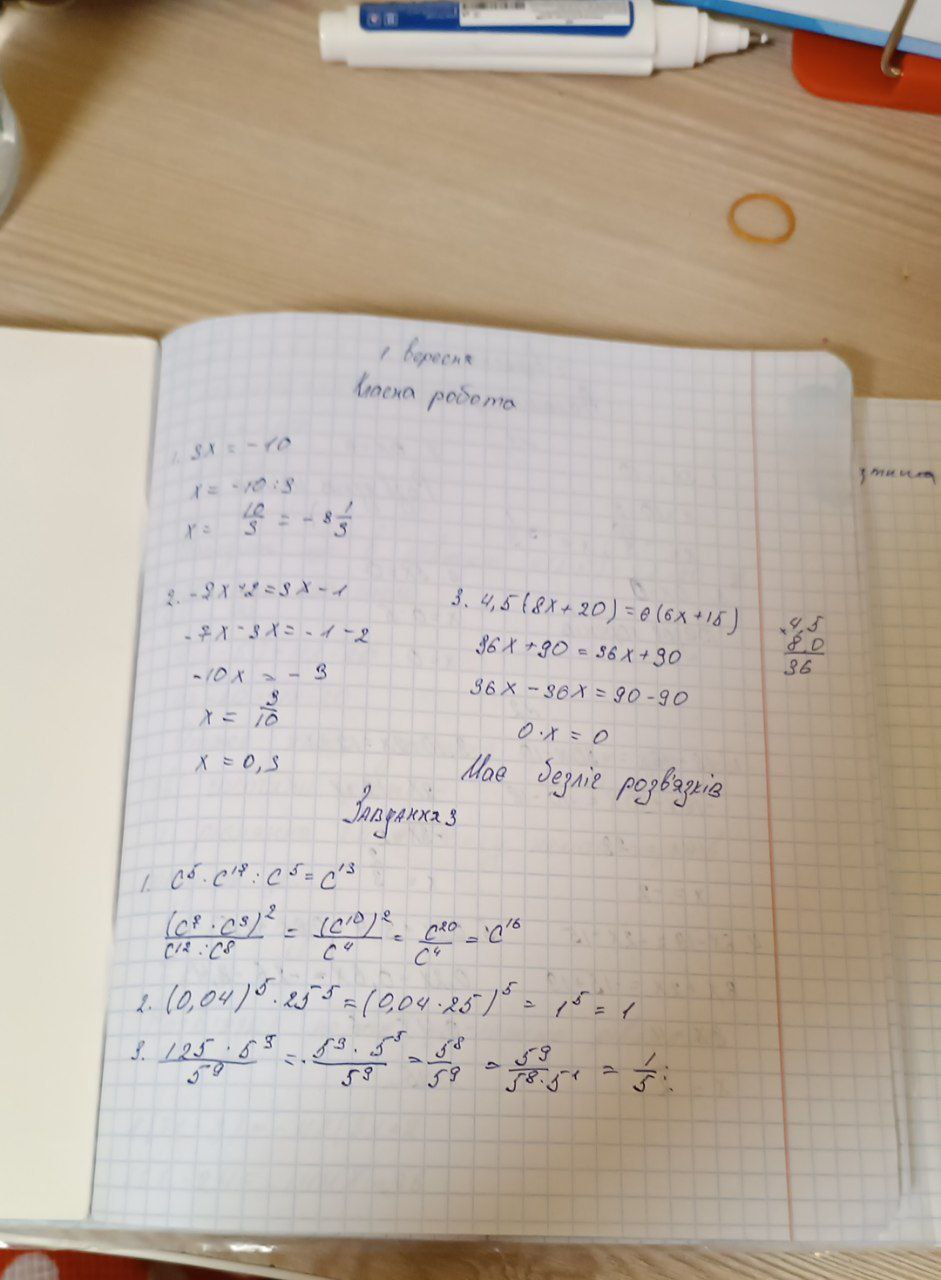 1 вересня
Класна робота
1. 3x = -10
x = -10 : 3
x = 10/3 = - 3 1/3
2. -7x+2=3x-1
-7x-3x=-1-2
-10x = -3
x = 3/10
x = 0,3
3. 4,5(8x+20)=6(6x+15)
36x+90=36x+90
36x-36x=90-90
0·x = 0
Має безліч розв'язків
4,5
8,0
36
Завдання 3
1. c⁵·c¹³:c⁵=c¹³
(c⁷·c³)²/c¹²:c⁸ = (c¹⁰)²/c⁴ = c²⁰/c⁴ = c¹⁶
2. (0,04)⁵·25⁵=(0,04·25)⁵ = 1⁵ = 1
3. 125·5³/5⁹ = 5³·5⁵/5⁹ = 5⁸/5⁹ = 5⁹/5⁸·5¹ = 1/5